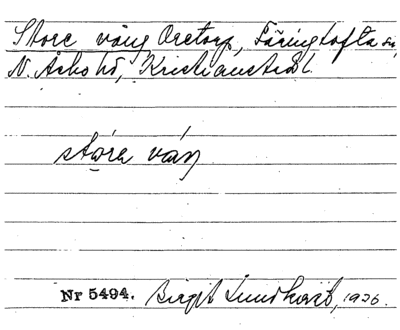 Store väng Oretorp, Färingtofta sn,
N. Åsbo hd, Kristianstad l.
stora váŋ
Nr 5494. Birgit Lundkvist, 1936.